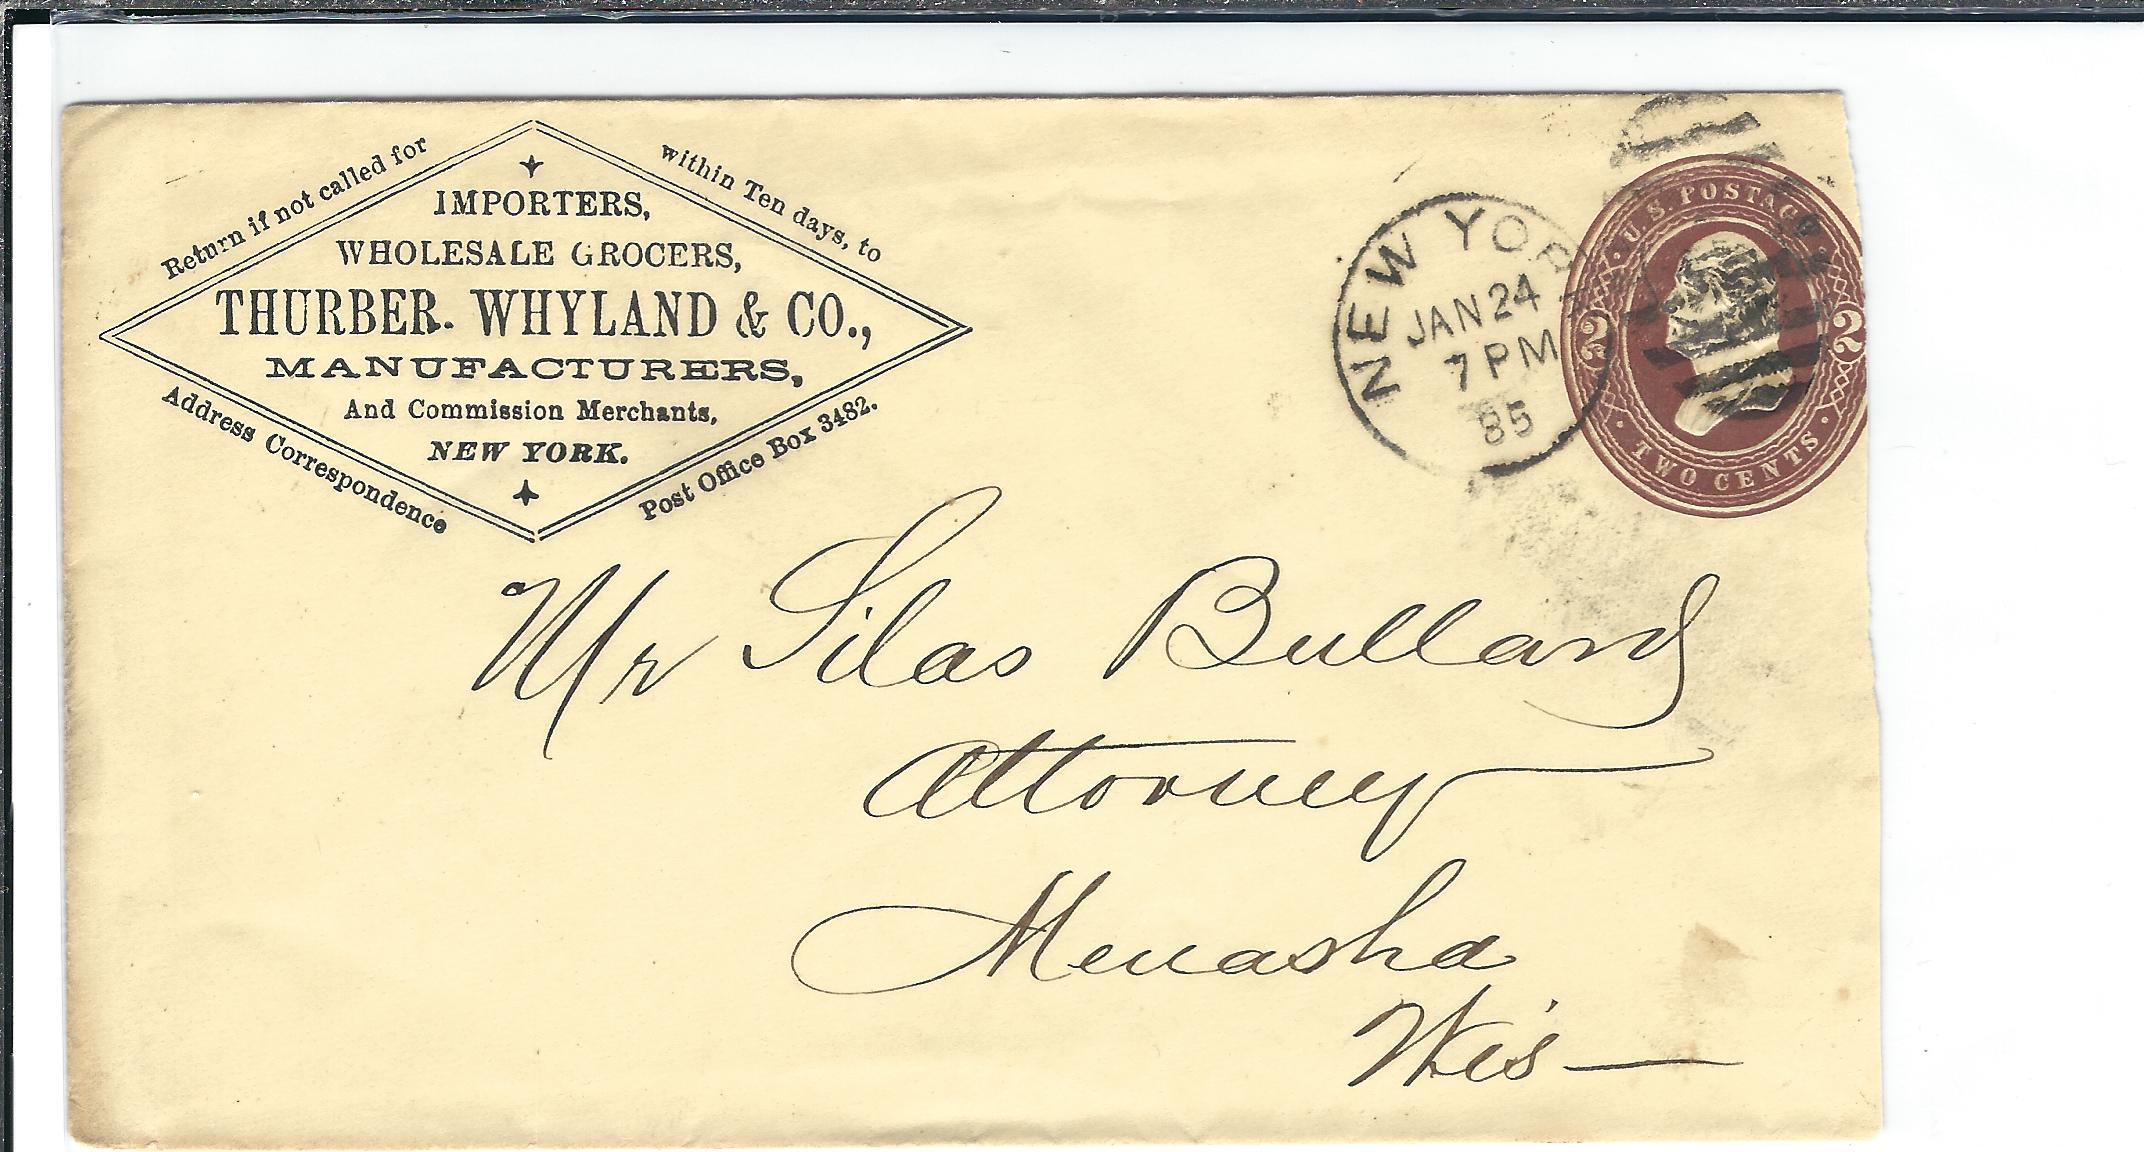 Return if not called for
within Ten days, to
IMPORTERS,
WHOLESALE GROCERS,
THURBER. WHYLAND & CO.,
MANUFACTURERS,
And Commission Merchants,
NEW YORK.
Address Correspondence
Post Office Box 3482.
NEW YORK
JAN 24
7 PM
85
U.S. POSTAGE
2 2
TWO CENTS
Mr Silas Bullard
Attorney
Menasha
Wis—